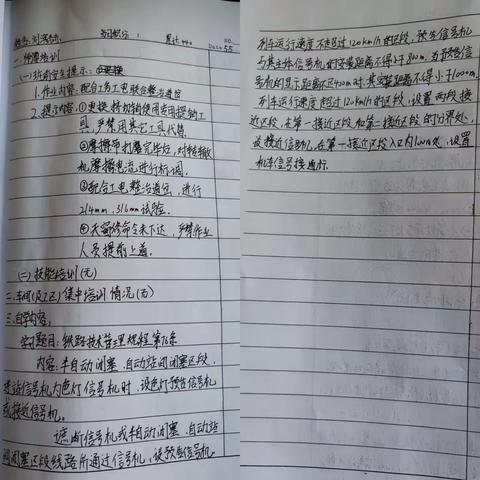 姓名:刘
累计:
NO.
Date 5.5
一、师带培训
(一)班前安全提示:
1.作业内容:配合工务工电联合整治道岔
2.提示内容:①更换转辙销使用专用拔销工
具,严禁用其它工具代替。
②摩擦带打磨完毕后,对转辙
机摩擦电流进行标调。
③配合工电整治道岔,进行
2/4mm、3/6mm试验。
④天窗修命令未下达,严禁作业
人员提前上道。
(二)技能培训(无)
二、车间(及工区)集中培训情况(无)
三、自学内容:
学习题目:铁路技术管理规程 第76条
内容:半自动闭塞、自动站间闭塞区段,
进站信号机为色灯信号机时,设色灯预告信号机
或接近信号机。
遮断信号机或半自动闭塞、自动站
间闭塞区段线路所通过信号机,设预告信号机。
列车运行速度不超过120km/h的区段,预告信号机
与其主体信号机的安装距离不得小于800m,当预告信
号机的显示距离不足400m时,其安装距离不得小于1000m。
列车运行速度超过120km/h的区段,设置两段接
近区段,在第一接近区段和第二接近区段的分界处,
设接近信号机,在第一接近区段入口内100m处,设置
机车信号接通标。